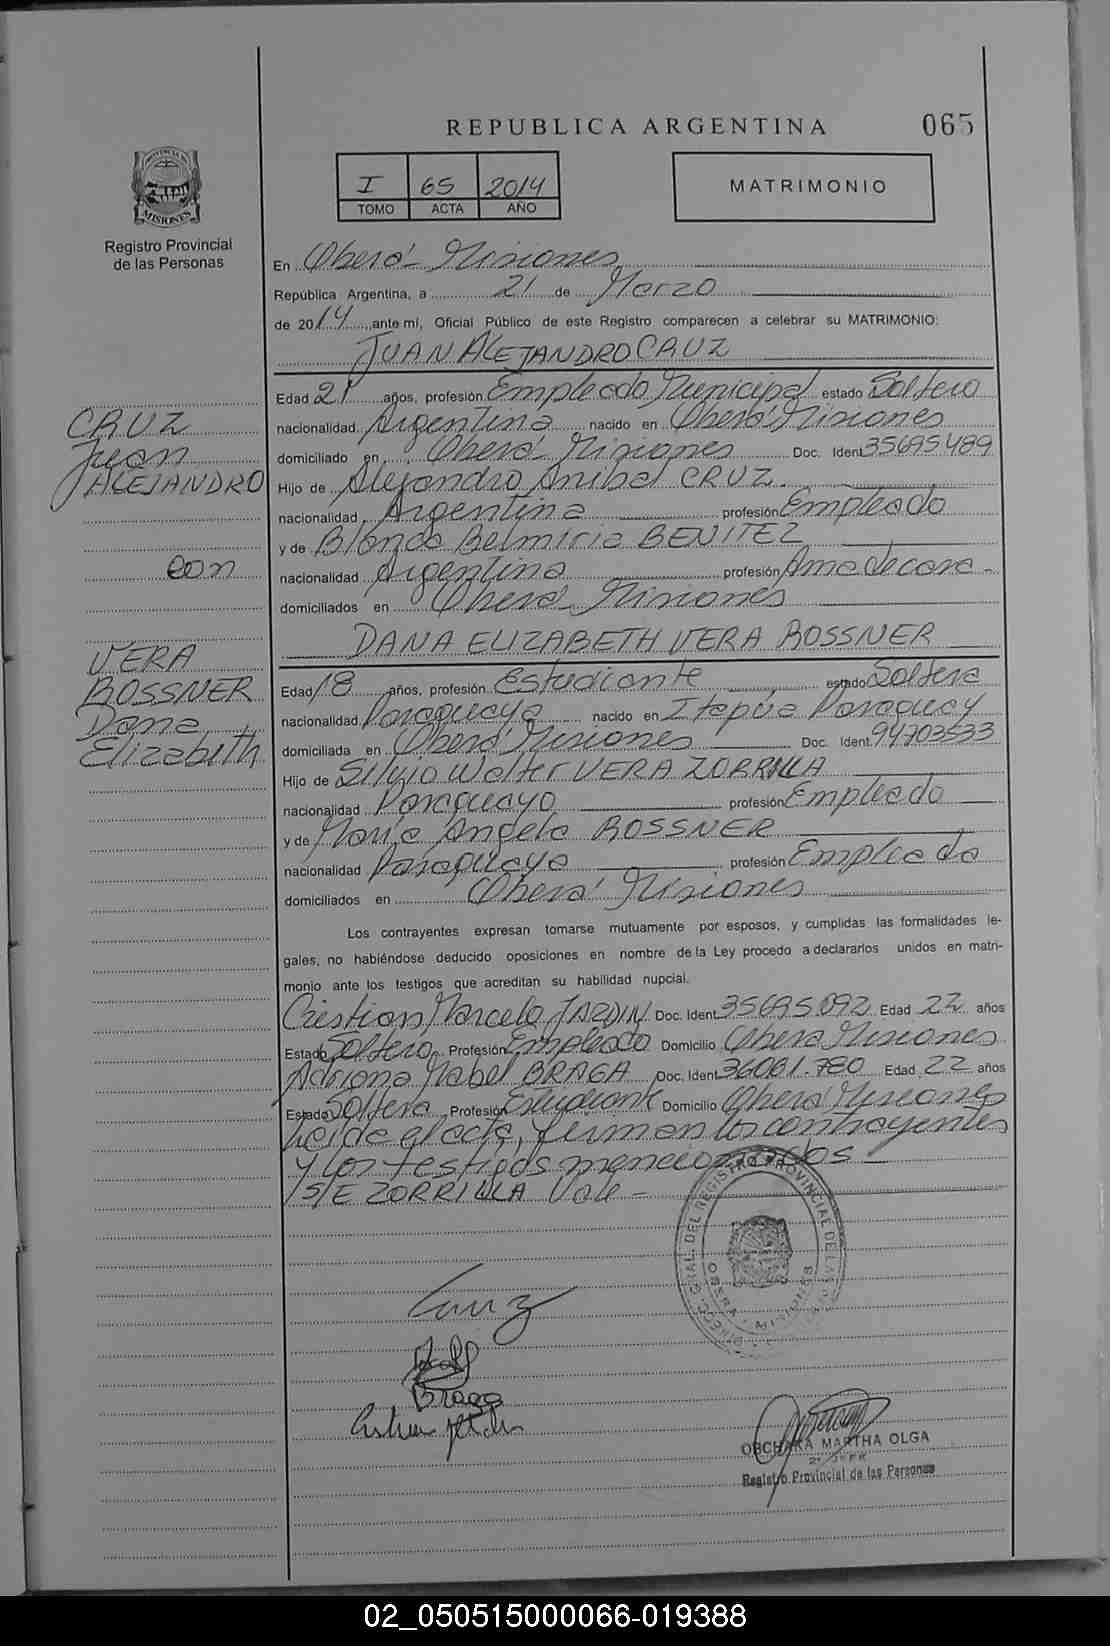 REPUBLICA ARGENTINA
065
PROVINCIA DE
MISIONES
Registro Provincial
de las Personas
I 65 2014
TOMO ACTA AÑO
MATRIMONIO
En Oberá Misiones
República Argentina, a 21 de Marzo
de 2014, ante mí, Oficial Público de este Registro comparecen a celebrar su MATRIMONIO:
JUAN ALEJANDRO CRUZ
Edad 21 años, profesión Empleado Municipal estado Soltero
nacionalidad Argentina nacido en Oberá Misiones
domiciliado en Oberá Misiones Doc. Ident. 35695489
Hijo de Alejandro Anibal CRUZ.
nacionalidad Argentina profesión Empleado
y de Blanca Belmiria BENITEZ
nacionalidad Argentina profesión Ama de casa
domiciliados en Oberá Misiones
DANA ELIZABETH VERA ROSSNER
Edad 18 años, profesión Estudiante estado Soltera
nacionalidad Paraguaya nacido en Itapúa Paraguay
domiciliada en Oberá Misiones Doc. Ident. 94703533
Hijo de Silvio Walter VERA ZORRILLA
nacionalidad Paraguayo profesión Empleado
y de María Angela ROSSNER
nacionalidad Paraguaya profesión Empleada
domiciliados en Oberá Misiones
Los contrayentes expresan tomarse mutuamente por esposos, y cumplidas las formalidades le-
gales, no habiéndose deducido oposiciones en nombre de la Ley procedo a declararlos unidos en matri-
monio ante los testigos que acreditan su habilidad nupcial.
Cristian Marcelo JARDIN Doc. Ident. 35695092 Edad 22 años
Estado Soltero Profesión Empleado Domicilio Oberá Misiones
Adriana Mabel BRAGA Doc. Ident. 36061.780 Edad 22 años
Estado Soltera Profesión Estudiante Domicilio Oberá Misiones
Leída el acta, firman los contrayentes
y los testigos mencionados
S/E ZORRILLA Vale
CRUZ
Juan
ALEJANDRO
con
VERA
ROSSNER
Dana
Elizabeth
DIRECC. GRAL. DEL REGISTRO PROVINCIAL DE LAS
OBERA - MISIONES
Cruz
Braga
MARTHA OLGA
Registro Provincial de las Personas
02_050515000066-019388